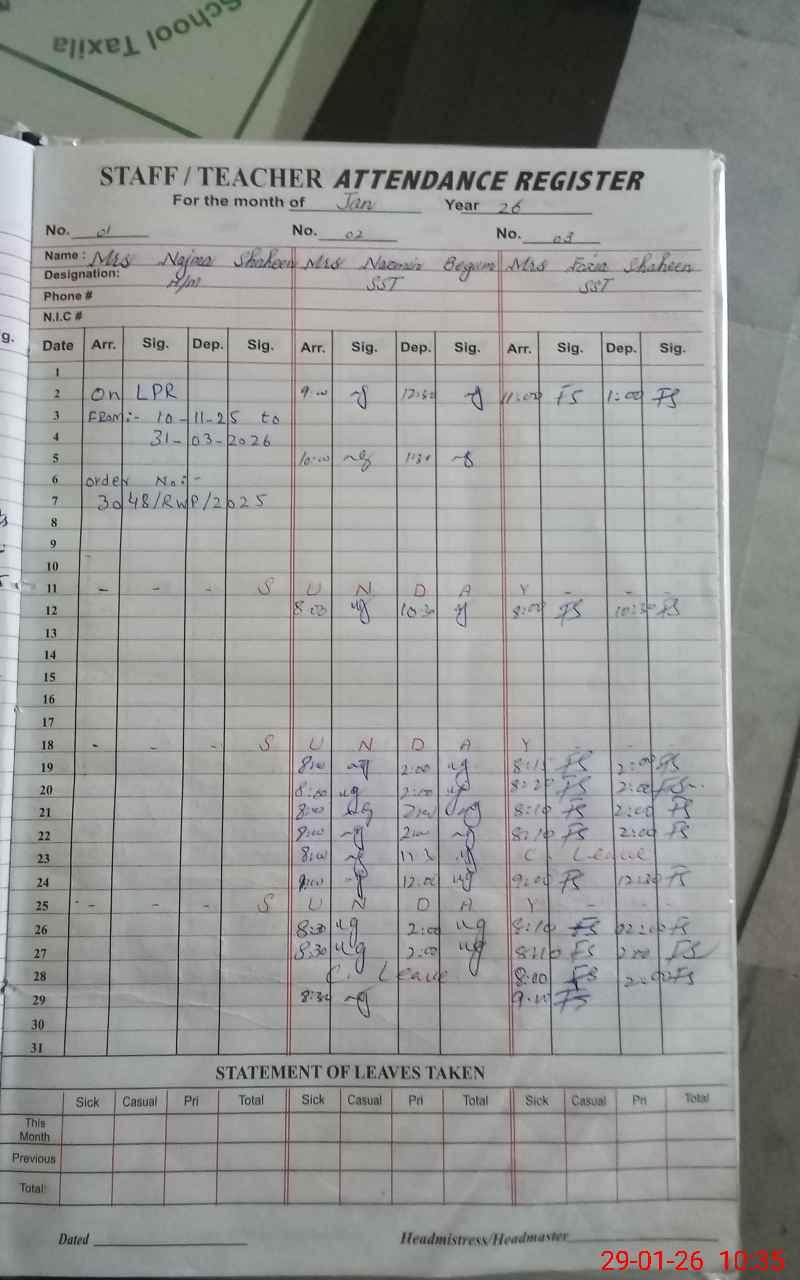 School Taxila
STAFF / TEACHER ATTENDANCE REGISTER
For the month of Jan Year 26
No. 01 No. 02 No. 03
Name : Mrs Najma Shaheen Mrs Nazmin Begum Mrs Fozia Shaheen
Designation: H/M SST SST
Phone #
N.I.C #
Date Arr. Sig. Dep. Sig. Arr. Sig. Dep. Sig. Arr. Sig. Dep. Sig.
1
2 On LPR 9:00 12:30 11:00 FS 1:00 FS
3 FROM:- 10-11-25 to
4 31-03-2026
5 10:00 1:30
6 order No:-
7 3048/RWP/2025
8
9
10
11 - - - S U N D A Y - - -
12 8:00 10:30 8:00 FS 10:30 FS
13
14
15
16
17
18 - - - S U N D A Y - - -
19 8:00 2:00 8:15 FS 2:00 FS
20 8:00 2:00 8:20 FS 2:00 FS
21 8:00 2:00 8:10 FS 2:00 FS
22 8:00 2:00 8:10 FS 2:00 FS
23 8:00 C. Leave
24 9:00 12:00 9:00 FS 12:30 FS
25 - - - S U N D A Y - - -
26 8:30 2:00 8:10 FS 02:00 FS
27 8:30 2:00 8:10 FS 2:00 FS
28 C. Leave 8:00 FS 2:00 FS
29 8:30 FS
30
31
STATEMENT OF LEAVES TAKEN
Sick Casual Pri Total Sick Casual Pri Total Sick Casual Pri Total
This
Month
Previous
Total:
Dated Headmistress/Headmaster
29-01-26 10:35